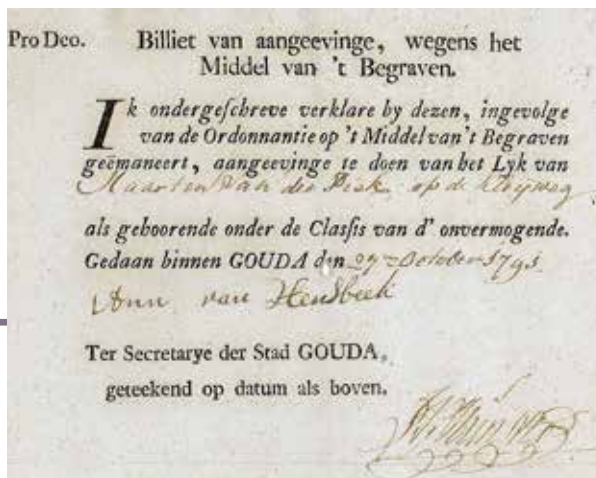 Pro Deo. Billiet van aangeevinge, wegens het
Middel van 't Begraven.
Ik ondergeſchreve verklare by dezen, ingevolge
van de Ordonnantie op 't Middel van 't Begraven
geëmaneert, aangeevinge te doen van het Lyk van
Maarten van der op de
als gehoorende onder de Claſſis van d' onvermogende.
Gedaan binnen GOUDA den 29 October 1795
van Hensbeek
Ter Secretarye der Stad GOUDA,
geteekend op datum als boven.